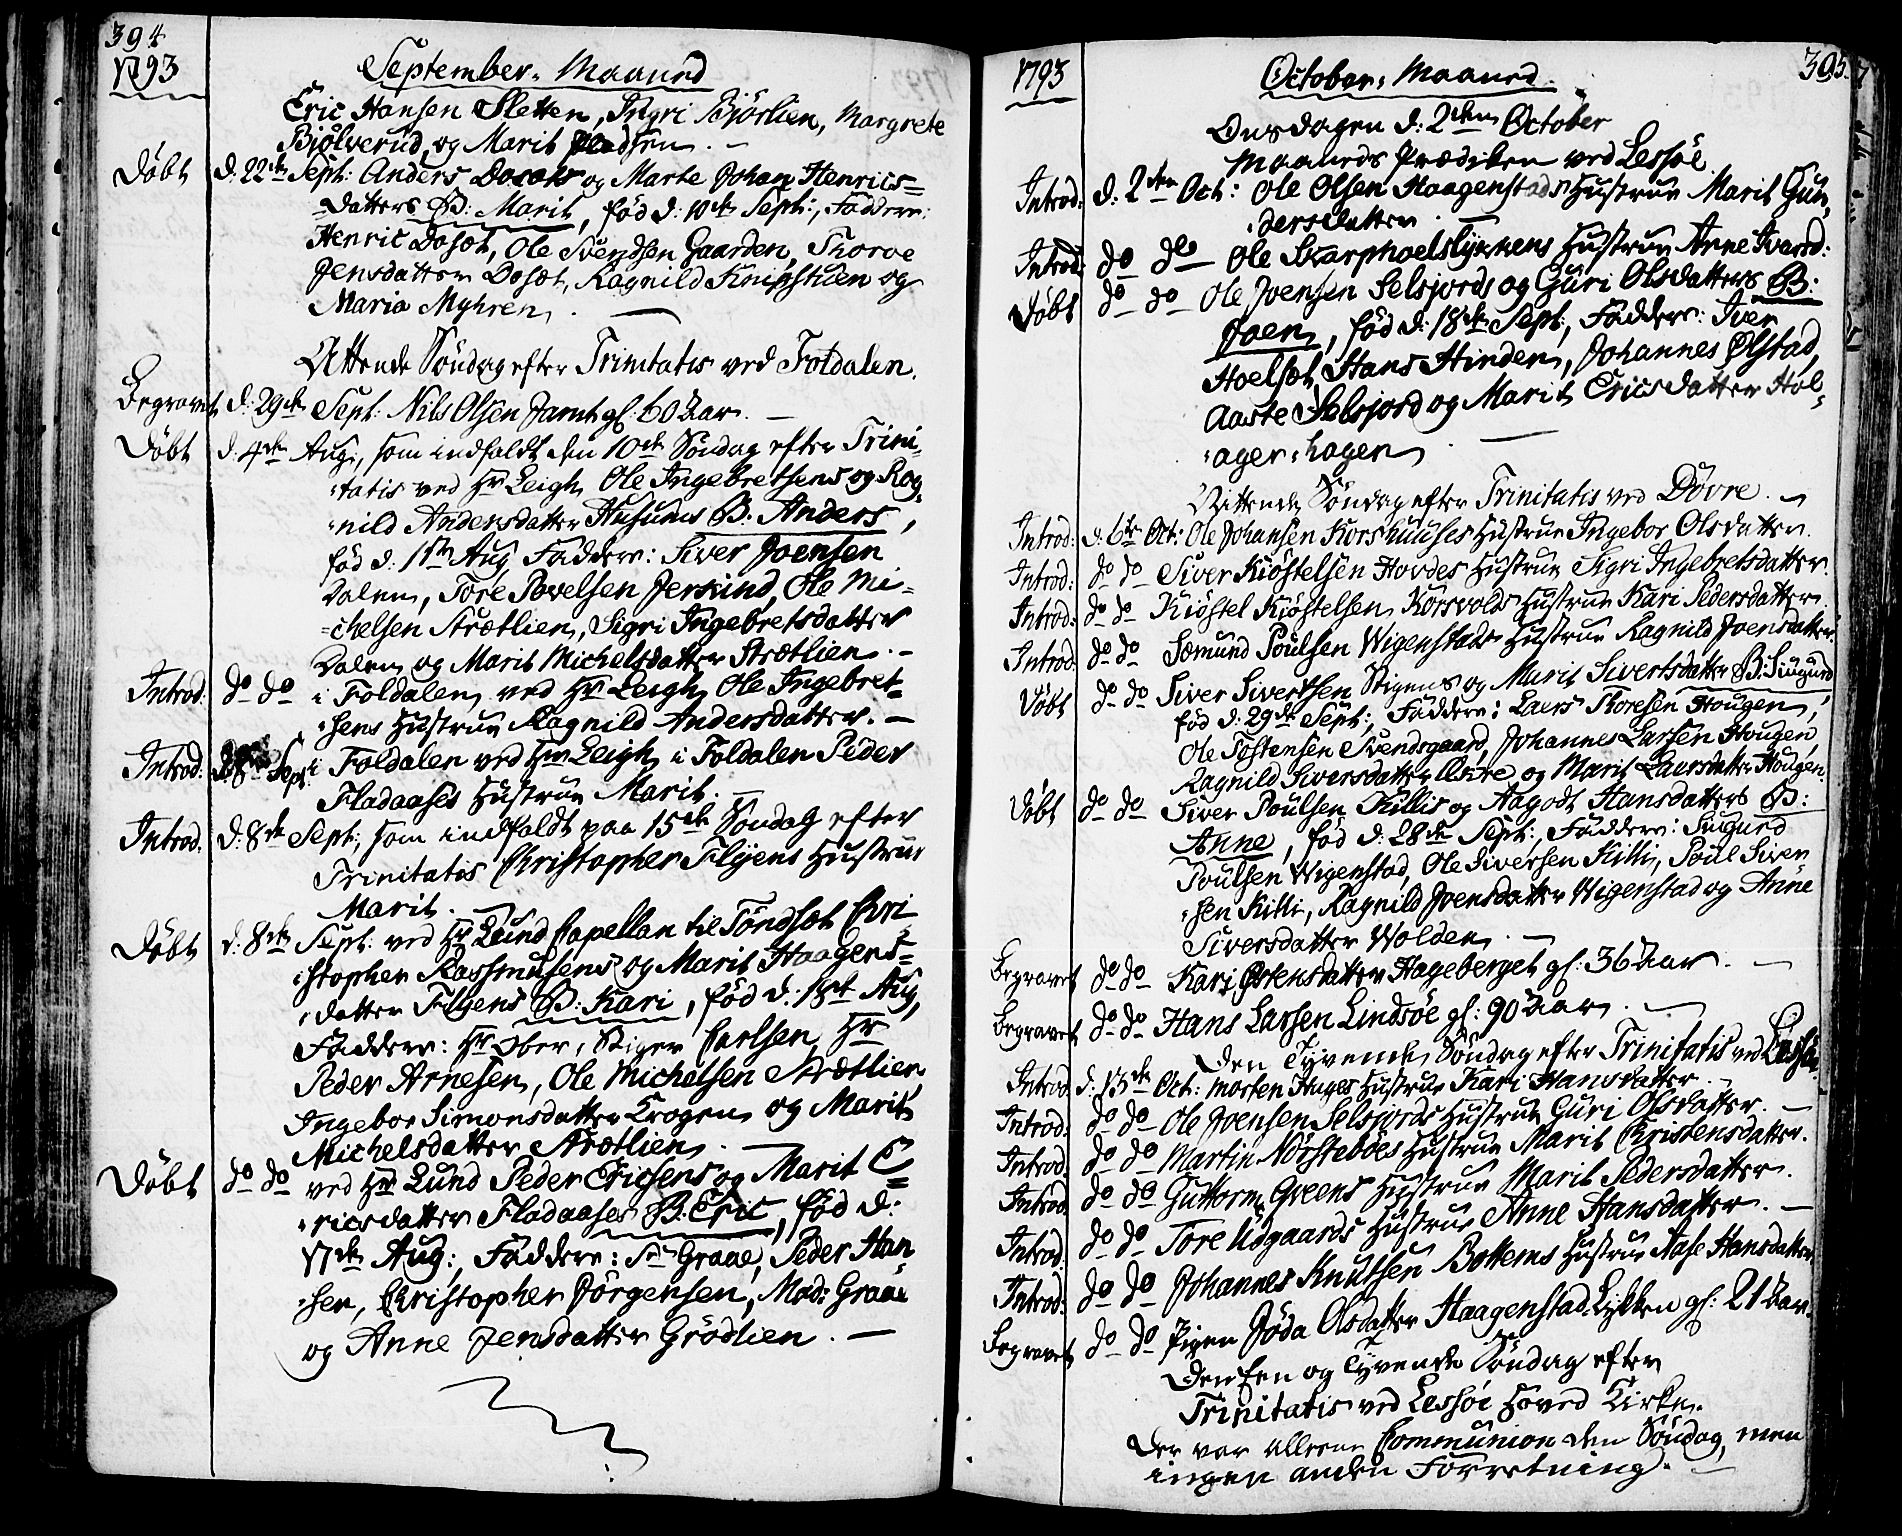 394
1793
September Maaned
Eric Hansen Sletten, Ingri Bjørlien, Margrete
Bjølverud, og Marit Pladsen. —
Døbt d: 22de Sept: Anders Dosæts og Marte Johan Henrics=
datters B: Marit, fød d: 10de Sept:, Faddere:
Henric Dosæt, Ole Svendsen Gaarden, Thorve
Jensdatter Dosæt, Ragnild Knipstuen og
Maria Myhren. —
Attende Søndag efter Trinitatis ved Foldalen.
Begravet d: 29de Sept: Nils Olsen Jamt gl: 60 Aar. —
Døbt d: 4de Aug:, som indfaldt den 10de Søndag efter Trini-
tatis ved Hr Leigh Ole Ingebretsens og Rag-
nild Andersdatter Husums B: Anders,
fød d: 1ste Aug Faddere: Siver Joensen
Dalen, Tore Povelsen Jerkind, Ole Mi-
chelsen Strætlien, Sigri Ingebretsdatter
Dalen og Marit Michelsdatter Strætlien. —
Introd: do do i Foldalen ved Hr Leigh Ole Ingebret-
sens Hustrue Ragnild Andersdatter. —
Introd: d: 8de Sept: i Foldalen ved Hr Leigh i Foldalen Peder
Fladaases Hustrue Marit. —
Introd: d: 8de Sept:, som indfaldt paa 15de Søndag efter
Trinitatis Christopher Flyens Hustrue
Marit. —
Døbt d: 8de Sept: ved Hr Lund Capellan til Tøndset Chri-
stopher Rasmusens og Marit Haagens=
datter Flyens B: Kari, fød d: 18de Aug,
Faddere: Hr Ober, Stiger Carlsen, Hr
Peder Arnesen, Ole Michelsen Strætlien
Ingebor Simonsdatter Krogen og Marit
Michelsdatter Strætlien. —
Døbt do do ved Hr Lund Peder Ericsens og Marit E=
ricsdatter Fladaases B: Eric, fød d:
17de Aug:, Faddere: Sr Graae, Peder Han-
sen, Christopher Jørgensen, Mad: Graae
og Anne Jensdatter Grødlien. —
395
1793
October Maaned.
Onsdagen d: 2den October
Maaneds Prædiken ved Lessøe
Introd: d: 2den Oct: Ole Olsen Haagenstads Hustrue Marit Gun-
dersdatter.
Introd: do do — Ole Skarphoelslykkens Hustrue Anne Ivarsd:
Døbt do do Ole Joensen Selsjords og Guri Olsdatters B:
Joen, fød d: 18de Sept:, Faddere: Iver
Hoelsæt, Hans Hinden, Johannes Ølstad,
Aaste Selsjord og Marit Ericsdatter Hol-
ager hagen. —
Nittende Søndag efter Trinitatis ved Dovre. —
Introd: d: 6te Oct: Ole Johansen Korshuuses Hustrue Ingebor Olsdatter.
Introd: do do Siver Kiøstelsen Hovdes Hustrue Sigri Ingebretsdatter.
Introd: do do Kiøstel Kiøstelsen Korsvolds Hustrue Kari Pedersdatter
Introd: do do Sæmund Poulsen Wigenstads Hustrue Ragnild Joensdatter.
Døbt do do Siver Sivertsen Stigens og Marit Sivertsdatter B: Siugurd
fød d: 29de Sept:, Faddere: Laers Thoresen Hougen,
Ole Tostensen Svendsgaard, Johannes Larsen Hougen,
Ragnild Siversdatter Ekre, og Marit Laersdatter Hougen.
Døbt do do Siver Poulsen Killis og Aagodt Hansdatters B:
Anne, fød d: 28de Sept:, Faddere: Siugurd
Poulsen Wigenstad, Ole Siversen Killi, Poul Siver
sen Killi, Ragnild Joensdatter Wigenstad og Anne
Siversdatter Wolden. —
Begravet do do Kari Østensdatter Hageberget gl: 36 Aar. —
Begravet do do Hans Larsen Lindsøe gl: 90 Aar. —
Den Tyvende Søndag efter Trinitatis ved Lessøe
Introd: d: 13de Oct: Morten Hages Hustrue Kari Hansdatter. —
Introd: do do Ole Joensen Selsjords Hustrue Guri Olsdatter. —
Introd: do do Martin Nørsteboes Hustrue Marit Christensdatter.
Introd: do do Guttorm Greens Hustrue Marit Pedersdatter.
Introd: do do Tore Udgaards Hustrue Anne Hansdatter. —
Introd: do do Johannes Knutsen Bottems Hustrue Aase Hansdatter
Begravet do do Pigen Jøda Olsdatter Haagenstad-Lykken gl: 21 Aar.
Den Een og Tyvende Søndag efter
Trinitatis ved Lessøe Hoved Kirke.
Der var alleene Communion den Søndag, men
ingen anden Forretning. —